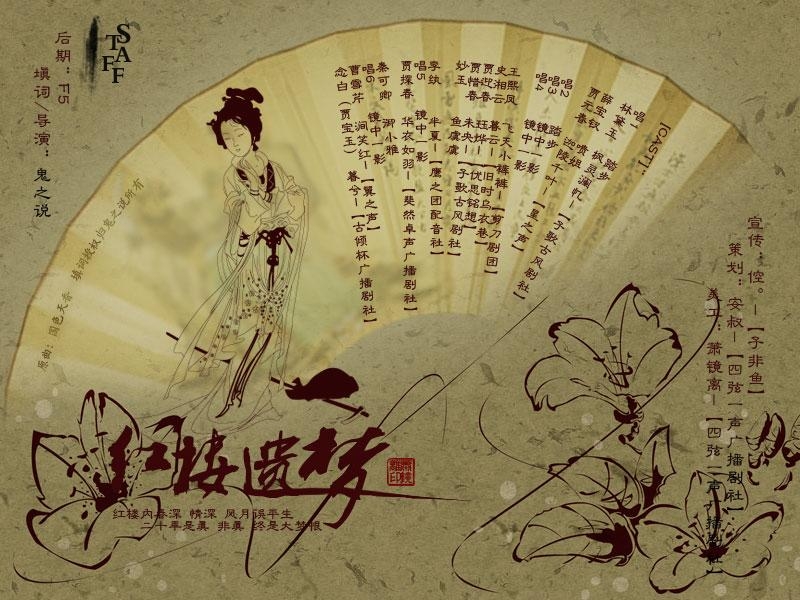 STAFF
后期：F5
填词/导演：鬼之说
[CAST]：
唱1
林黛玉 踏步
薛宝钗 枫灵澜忆—[子歌古风剧社]
贾元春 喷嚏
唱2
唱3 踏步
唱4 镜中一影
王熙凤 飞天小裤裤—[剪刀剧团]
史湘云 暮云—[旧时乌衣巷]
贾迎春 珏烨—[优思铭想]
贾惜春 未央—[子歌古风剧社]
妙玉 鱼虞虞
李纨 半夏—[鹰之团配音社]
唱5 镜中一影
贾探春 华衣如羽—[斐然卓声广播剧社]
秦可卿 御小雅
唱6 镜中一影
曹雪芹 涧笑红—[翼之声]
念白（贾宝玉） 暮兮—[古倾杯广播剧社]
原曲：国色天香 填词授权归鬼之说所有
宣传：倥。—[子非鱼]
策划：安叔—[四弦一声广播剧社]
美工：萧镜离—[四弦一声广播剧社]
红楼遗梦
红楼内春深 情深 风月误平生
二十年是真 非真 终是大梦根